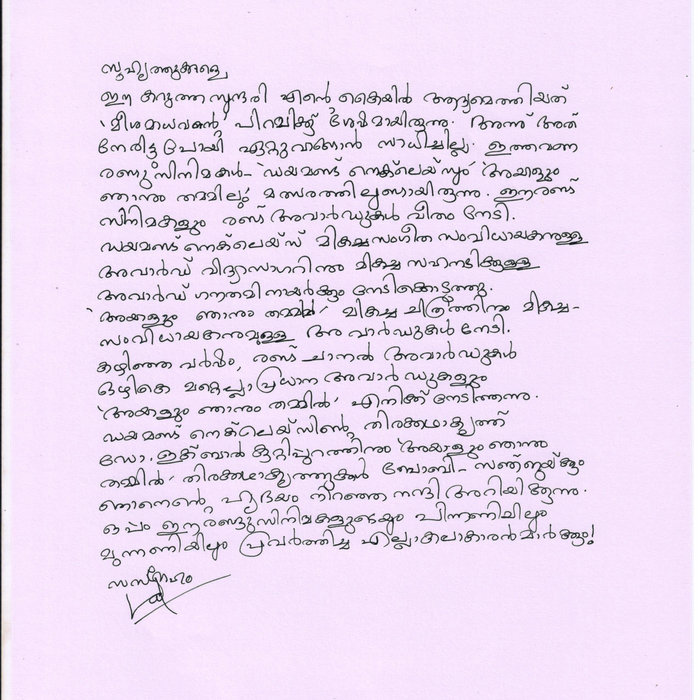 സുഹൃത്തുക്കളെ,
ഈ കറുത്ത സുന്ദരി എന്റെ കൈയിൽ ആദ്യമെത്തിയത്
'മീശമാധവന്റെ' പിറവിക്ക് ശേഷമായിരുന്നു. അന്ന് അത്
നേരിട്ട് പോയി ഏറ്റുവാങ്ങാൻ സാധിച്ചില്ല. ഇത്തവണ
രണ്ടു സിനിമകൾ- 'ഡയമണ്ട് നെക്‌ലെയ്സും' 'അയാളും
ഞാനും തമ്മിലും' മത്സരത്തിലുണ്ടായിരുന്നു. ഈ രണ്ട്
സിനിമകളും രണ്ട് അവാർഡുകൾ വീതം നേടി.
ഡയമണ്ട് നെക്‌ലെയ്സ് മികച്ച സംഗീത സംവിധായകനുള്ള
അവാർഡ് വിദ്യാസാഗറിനും മികച്ച സഹനടിക്കുള്ള
അവാർഡ് ഗൗതമി നായർക്കും നേടിക്കൊടുത്തു.
'അയാളും ഞാനും തമ്മിൽ' മികച്ച ചിത്രത്തിനും മികച്ച-
സംവിധായകനുമുള്ള അവാർഡുകൾ നേടി.
കഴിഞ്ഞ വർഷം, രണ്ട് ചാനൽ അവാർഡുകൾ
ഒഴികെ മറ്റെല്ലാ പ്രധാന അവാർഡുകളും
'അയാളും ഞാനും തമ്മിൽ' എനിക്ക് നേടിത്തന്നു.
ഡയമണ്ട് നെക്‌ലെയ്സിന്റെ തിരക്കഥാകൃത്ത്
ഡോ. ഇക്ബാൽ കുറ്റിപ്പുറത്തിനും 'അയാളും ഞാനും
തമ്മിൽ' തിരക്കഥാകൃത്തുക്കൾ ബോബി- സഞ്ജയ്ക്കും
ഞാനെന്റെ ഹൃദയം നിറഞ്ഞ നന്ദി അറിയിക്കുന്നു.
ഒപ്പം ഈ രണ്ടു സിനിമകളുടെയും പിന്നണിയിലും
മുന്നണിയിലും പ്രവർത്തിച്ച എല്ലാ കലാകാരൻമാർക്കും!
സസ്നേഹം